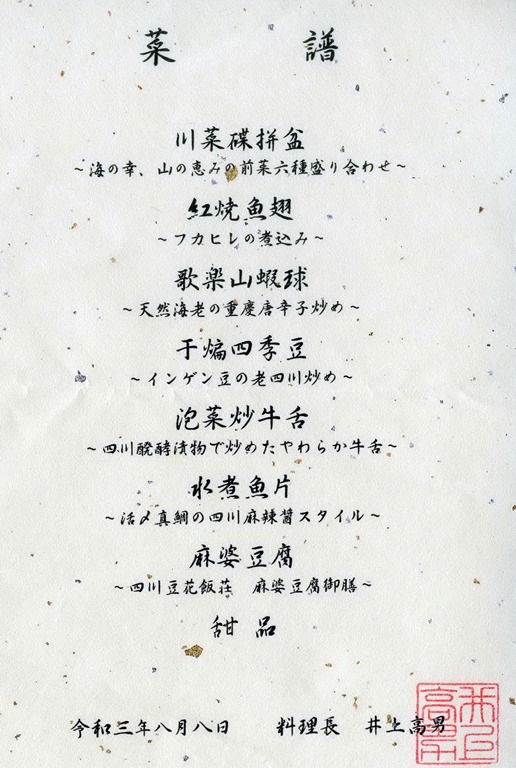 菜　譜
川菜碟拼盆
～海の幸、山の恵みの前菜六種盛り合わせ～
紅焼魚翅
～フカヒレの煮込み～
歌楽山蝦球
～天然海老の重慶唐辛子炒め～
干煸四季豆
～インゲン豆の老四川炒め～
泡菜炒牛舌
～四川醗酵漬物で炒めたやわらか牛舌～
水煮魚片
～活〆真鯛の四川麻辣醤スタイル～
麻婆豆腐
～四川豆花飯荘　麻婆豆腐御膳～
甜品
令和三年八月八日　料理長　井上高男